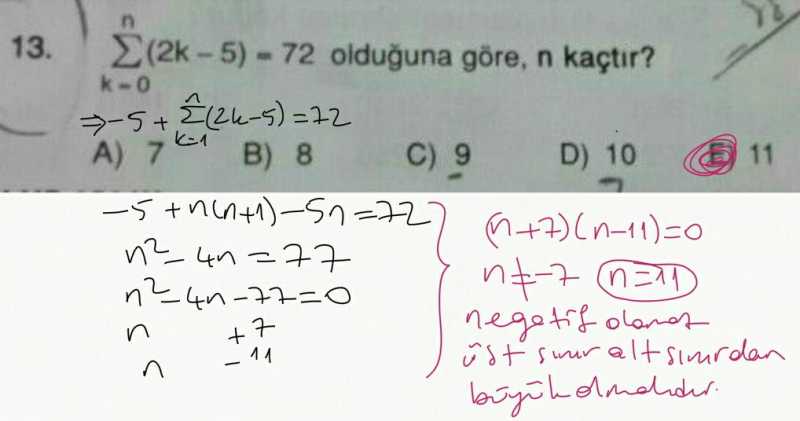 13. n
∑(2k – 5) = 72 olduğuna göre, n kaçtır?
k = 0
⇒ -5 + n∑k=1 (2k-5) = 72
A) 7 B) 8 C) 9 D) 10 E) 11
-5 + n(n+1) - 5n = 72
n² - 4n = 77
n² - 4n - 77 = 0
n +7
n -11
(n+7)(n-11)=0
n ≠ -7 n=11
negatif olamaz
üst sınır alt sınırdan
büyük olmalıdır.